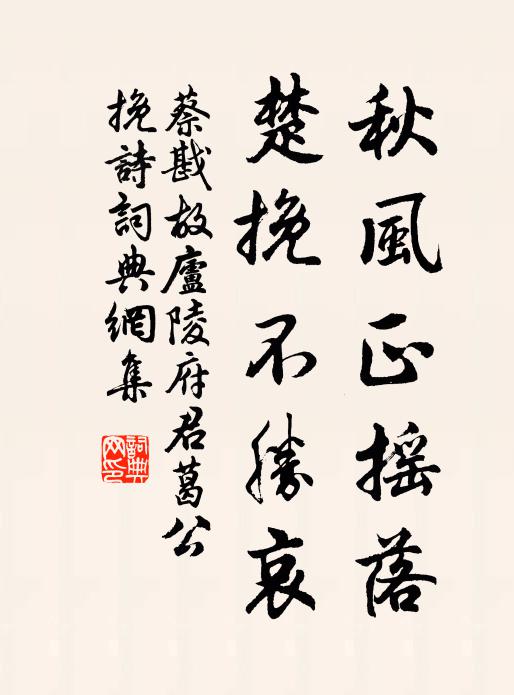 秋風正摇落
楚挽不勝哀
蔡戡故廬陵府君葛公
挽詩詞典網集
詞典
网印